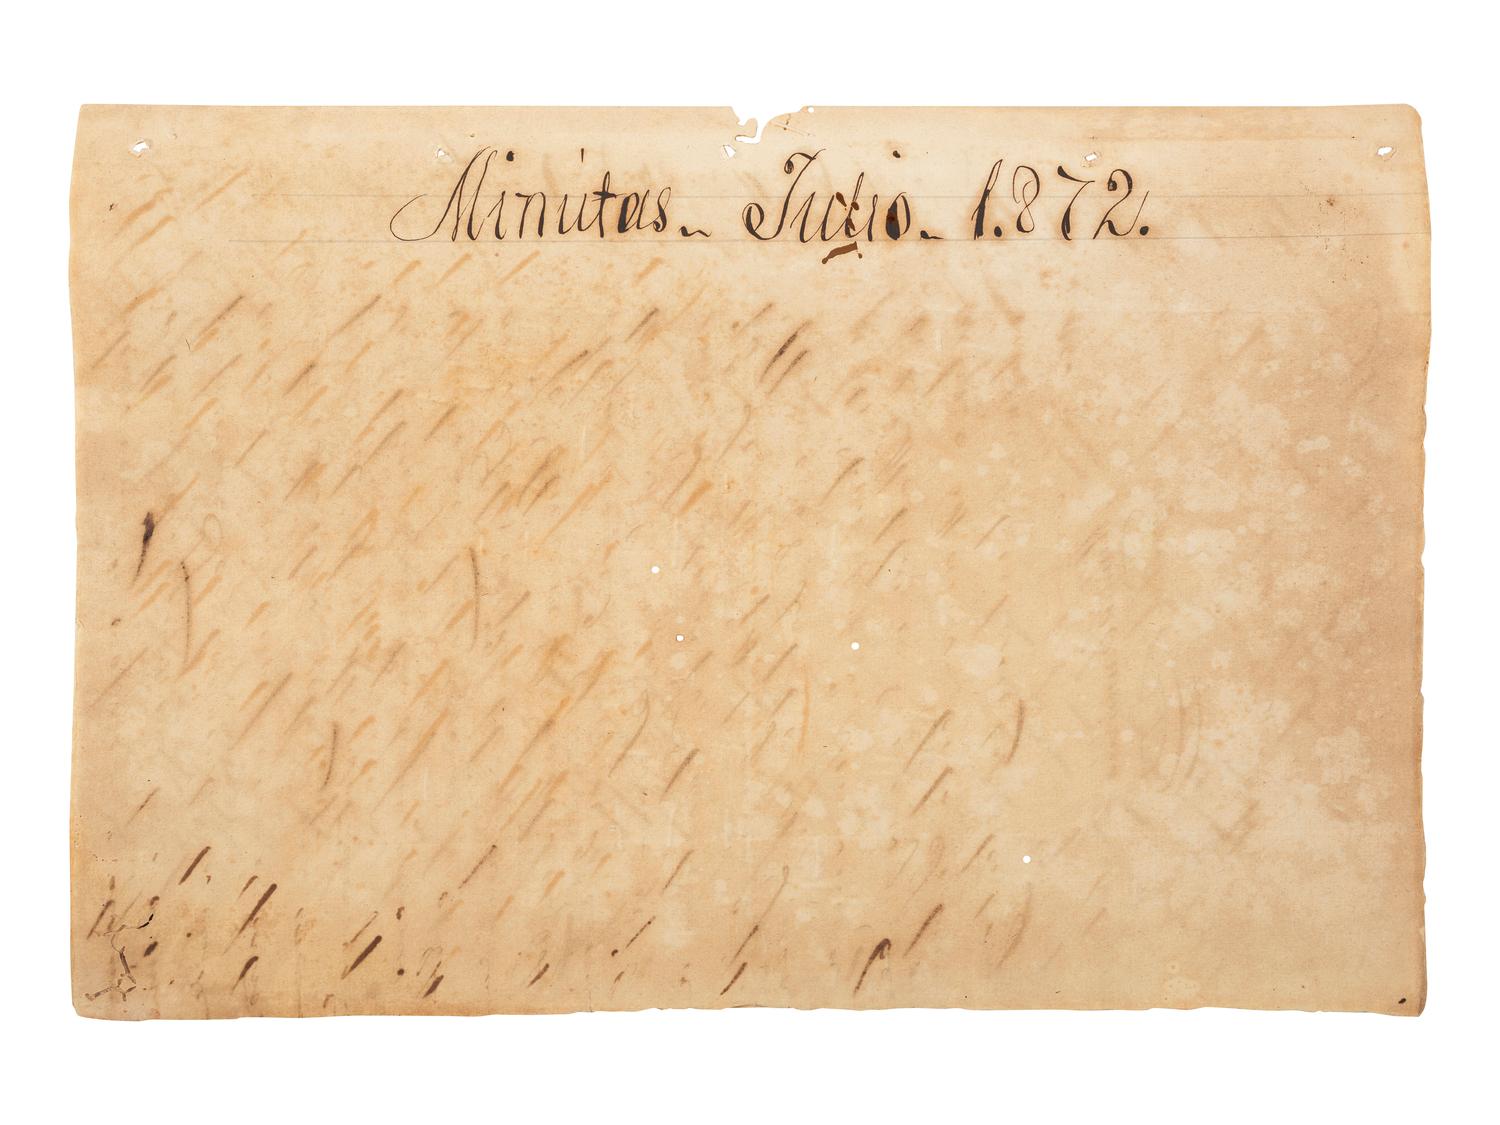 Minutas. Julio. 1.872.